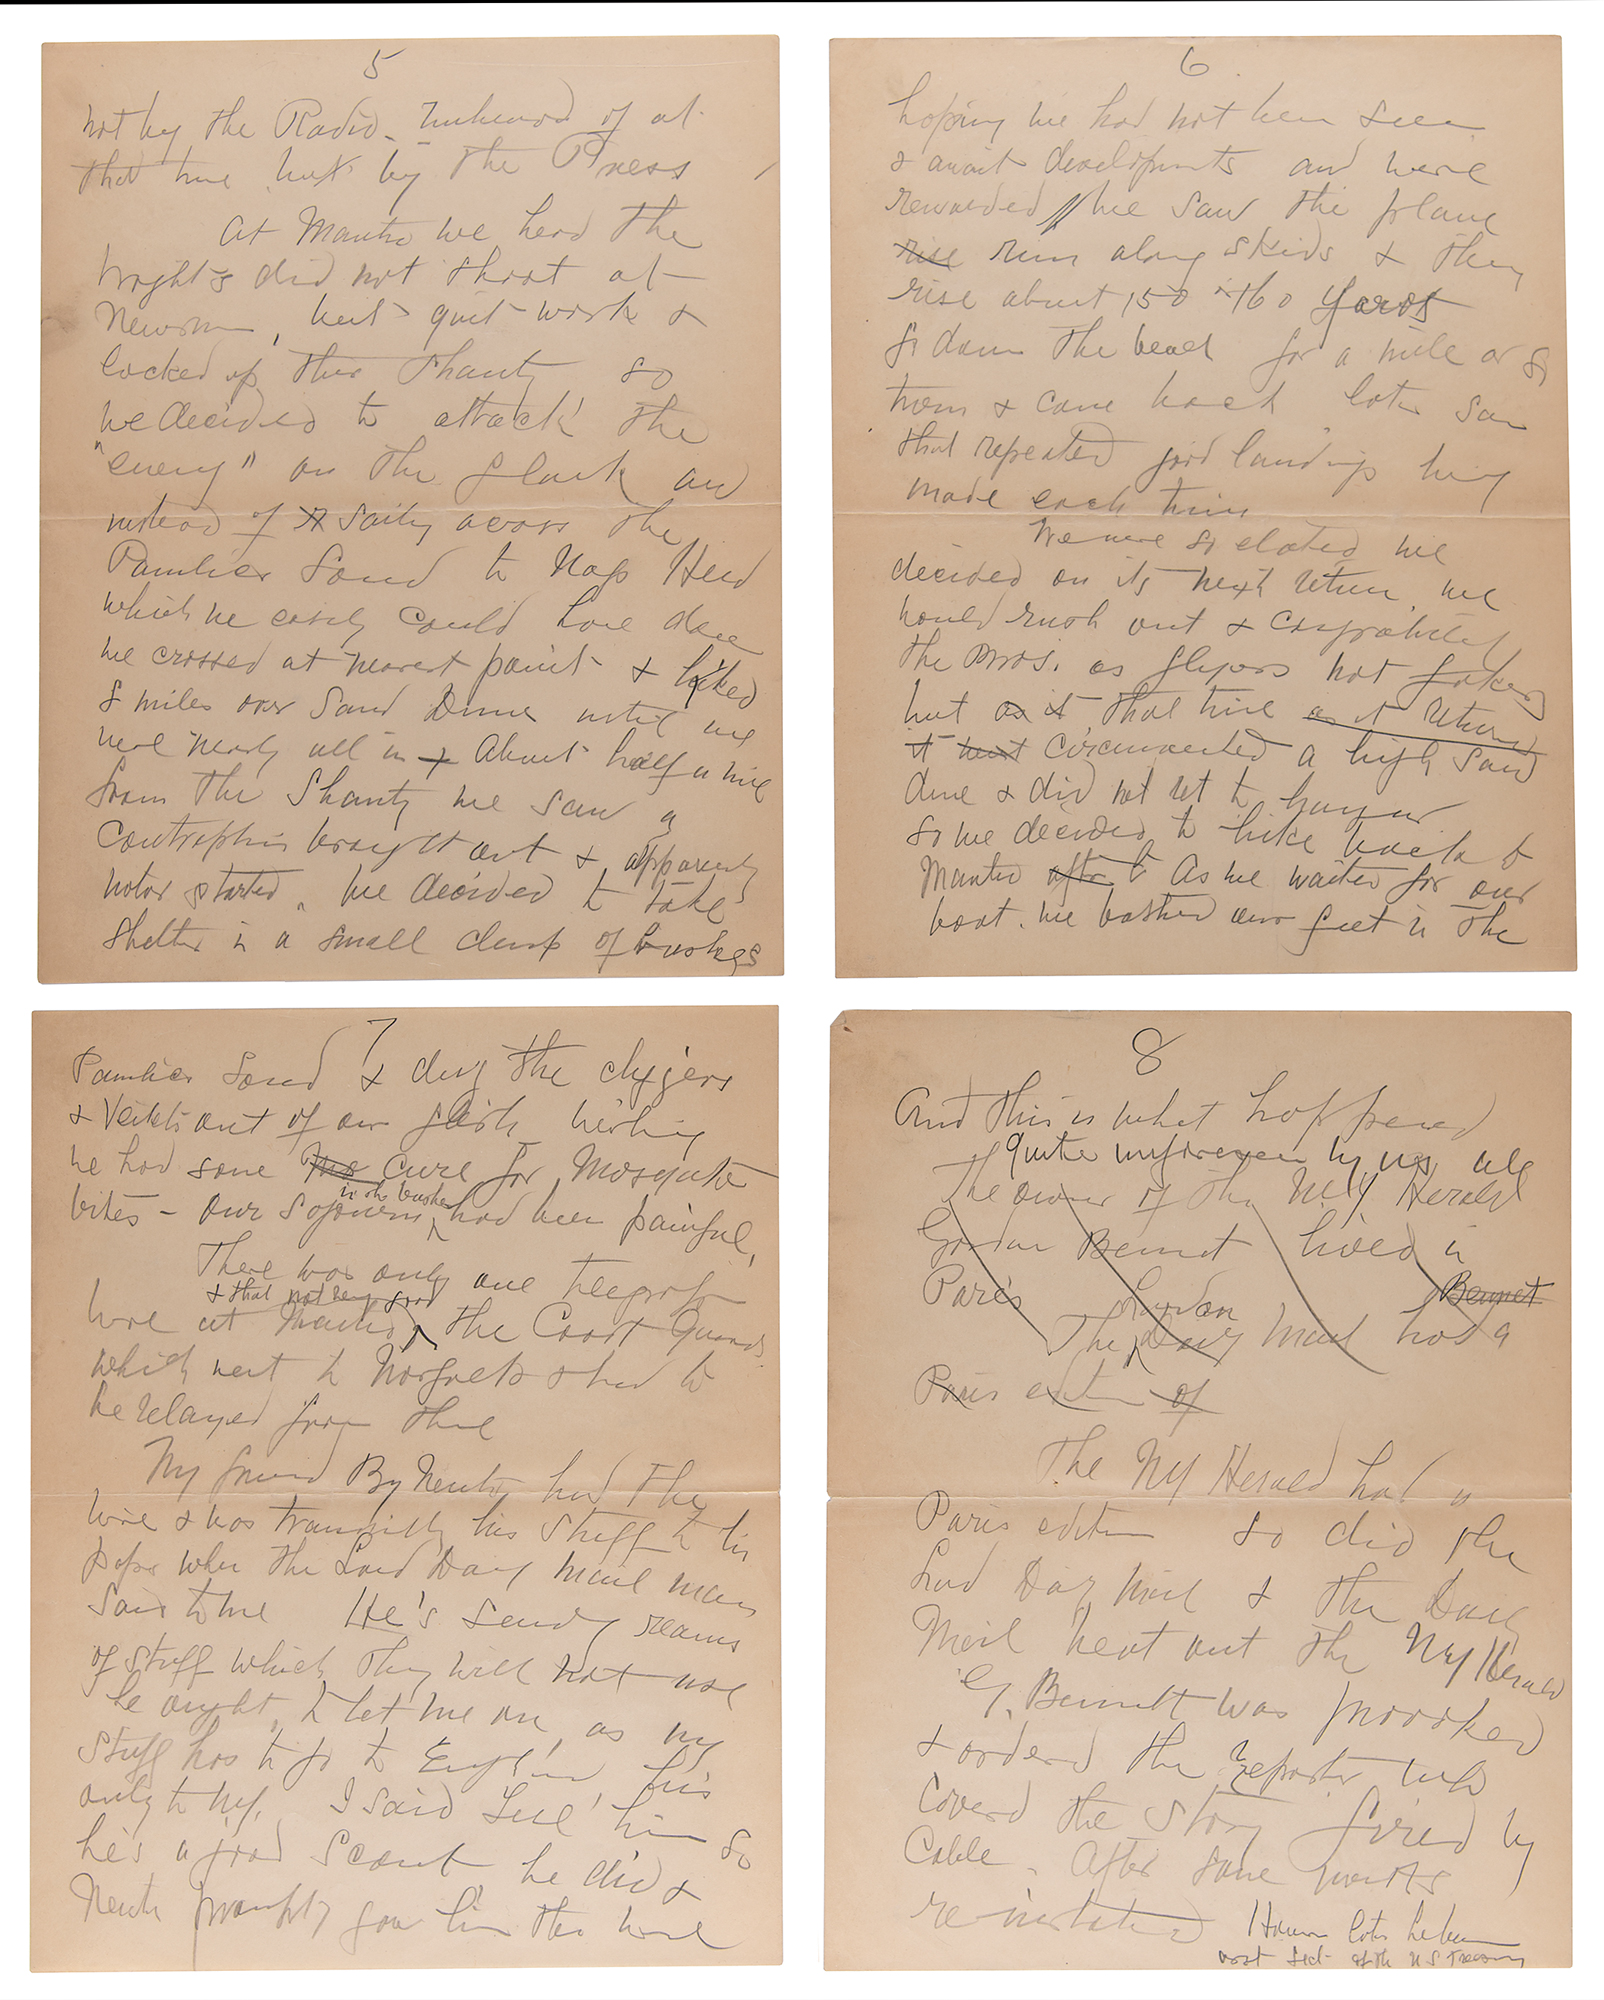 5
not by the Radio - unheard of at
that time but by the Press
At Manteo we herd the
Wrights did not shoot at
Newsmen, but quit work &
locked up their Shanty so
we decided to attack the
"enemy" on the flank and
instead of sailg across the
Pamlico Sound to Nags Head
which we easily could have done
we crossed at nearest point & hiked
8 miles over Sand Dunes until we
were nearly all in & About half a mile
from the Shanty we saw a
Contraption brought out & apparently
motor started. We decided to take
shelter in a small clump of bushes
6
hoping we had not been seen
& await developments and were
rewarded // We saw the plane
rise run along skids & then
rise about 150 or 160 yards
go down the beach for a mile or so
turn & came back later saw
that repeated good landings being
made each time
We were so elated we
decided on its next return, we
would rush out &
the Bros. as flyers not fakers
but as it that time as it returned
it went circumvented a high sand
dune & did not ret to hangar
so we decided to hike back to
Manteo after t As we waited for our
boat. we bathed our feet in the
7
Pamlico Sound & dug the chiggers
& out of our flesh wishing
we had some cure for Mosquito
bites - our sojourn in the bushes had been painful,
There was only one telegraph
wire at Manteo & that not very good, the Coast Guards
which went to Norfolk & had to
be relayed from there
My friend By Newton had the
wire & was transmittg his stuff to his
paper when the Lond Daily Mail man
said to me He's sendg reams
of stuff which they will not use
he ought to let me on, as my
stuff has to go to England, his
only to NY. I said Tell him so
he's a good scout he did &
Newton promptly gave him the wire
8
And this is what happened
quite unforeseen by us all
The owner of the N.Y. Herald
Gordon Bennet lived in
Paris Bennet
The London Daily Mail had a
Paris edition of
The NY Herald had a
Paris edition so did the
Lond Daily Mail & the Daily
Mail beat out the NY Herald
G. Bennett was provoked
& ordered the reporter who
coverd the story fired by
Cable. After some months
reinstated Howev later he became
asst Sect of the US Treasury